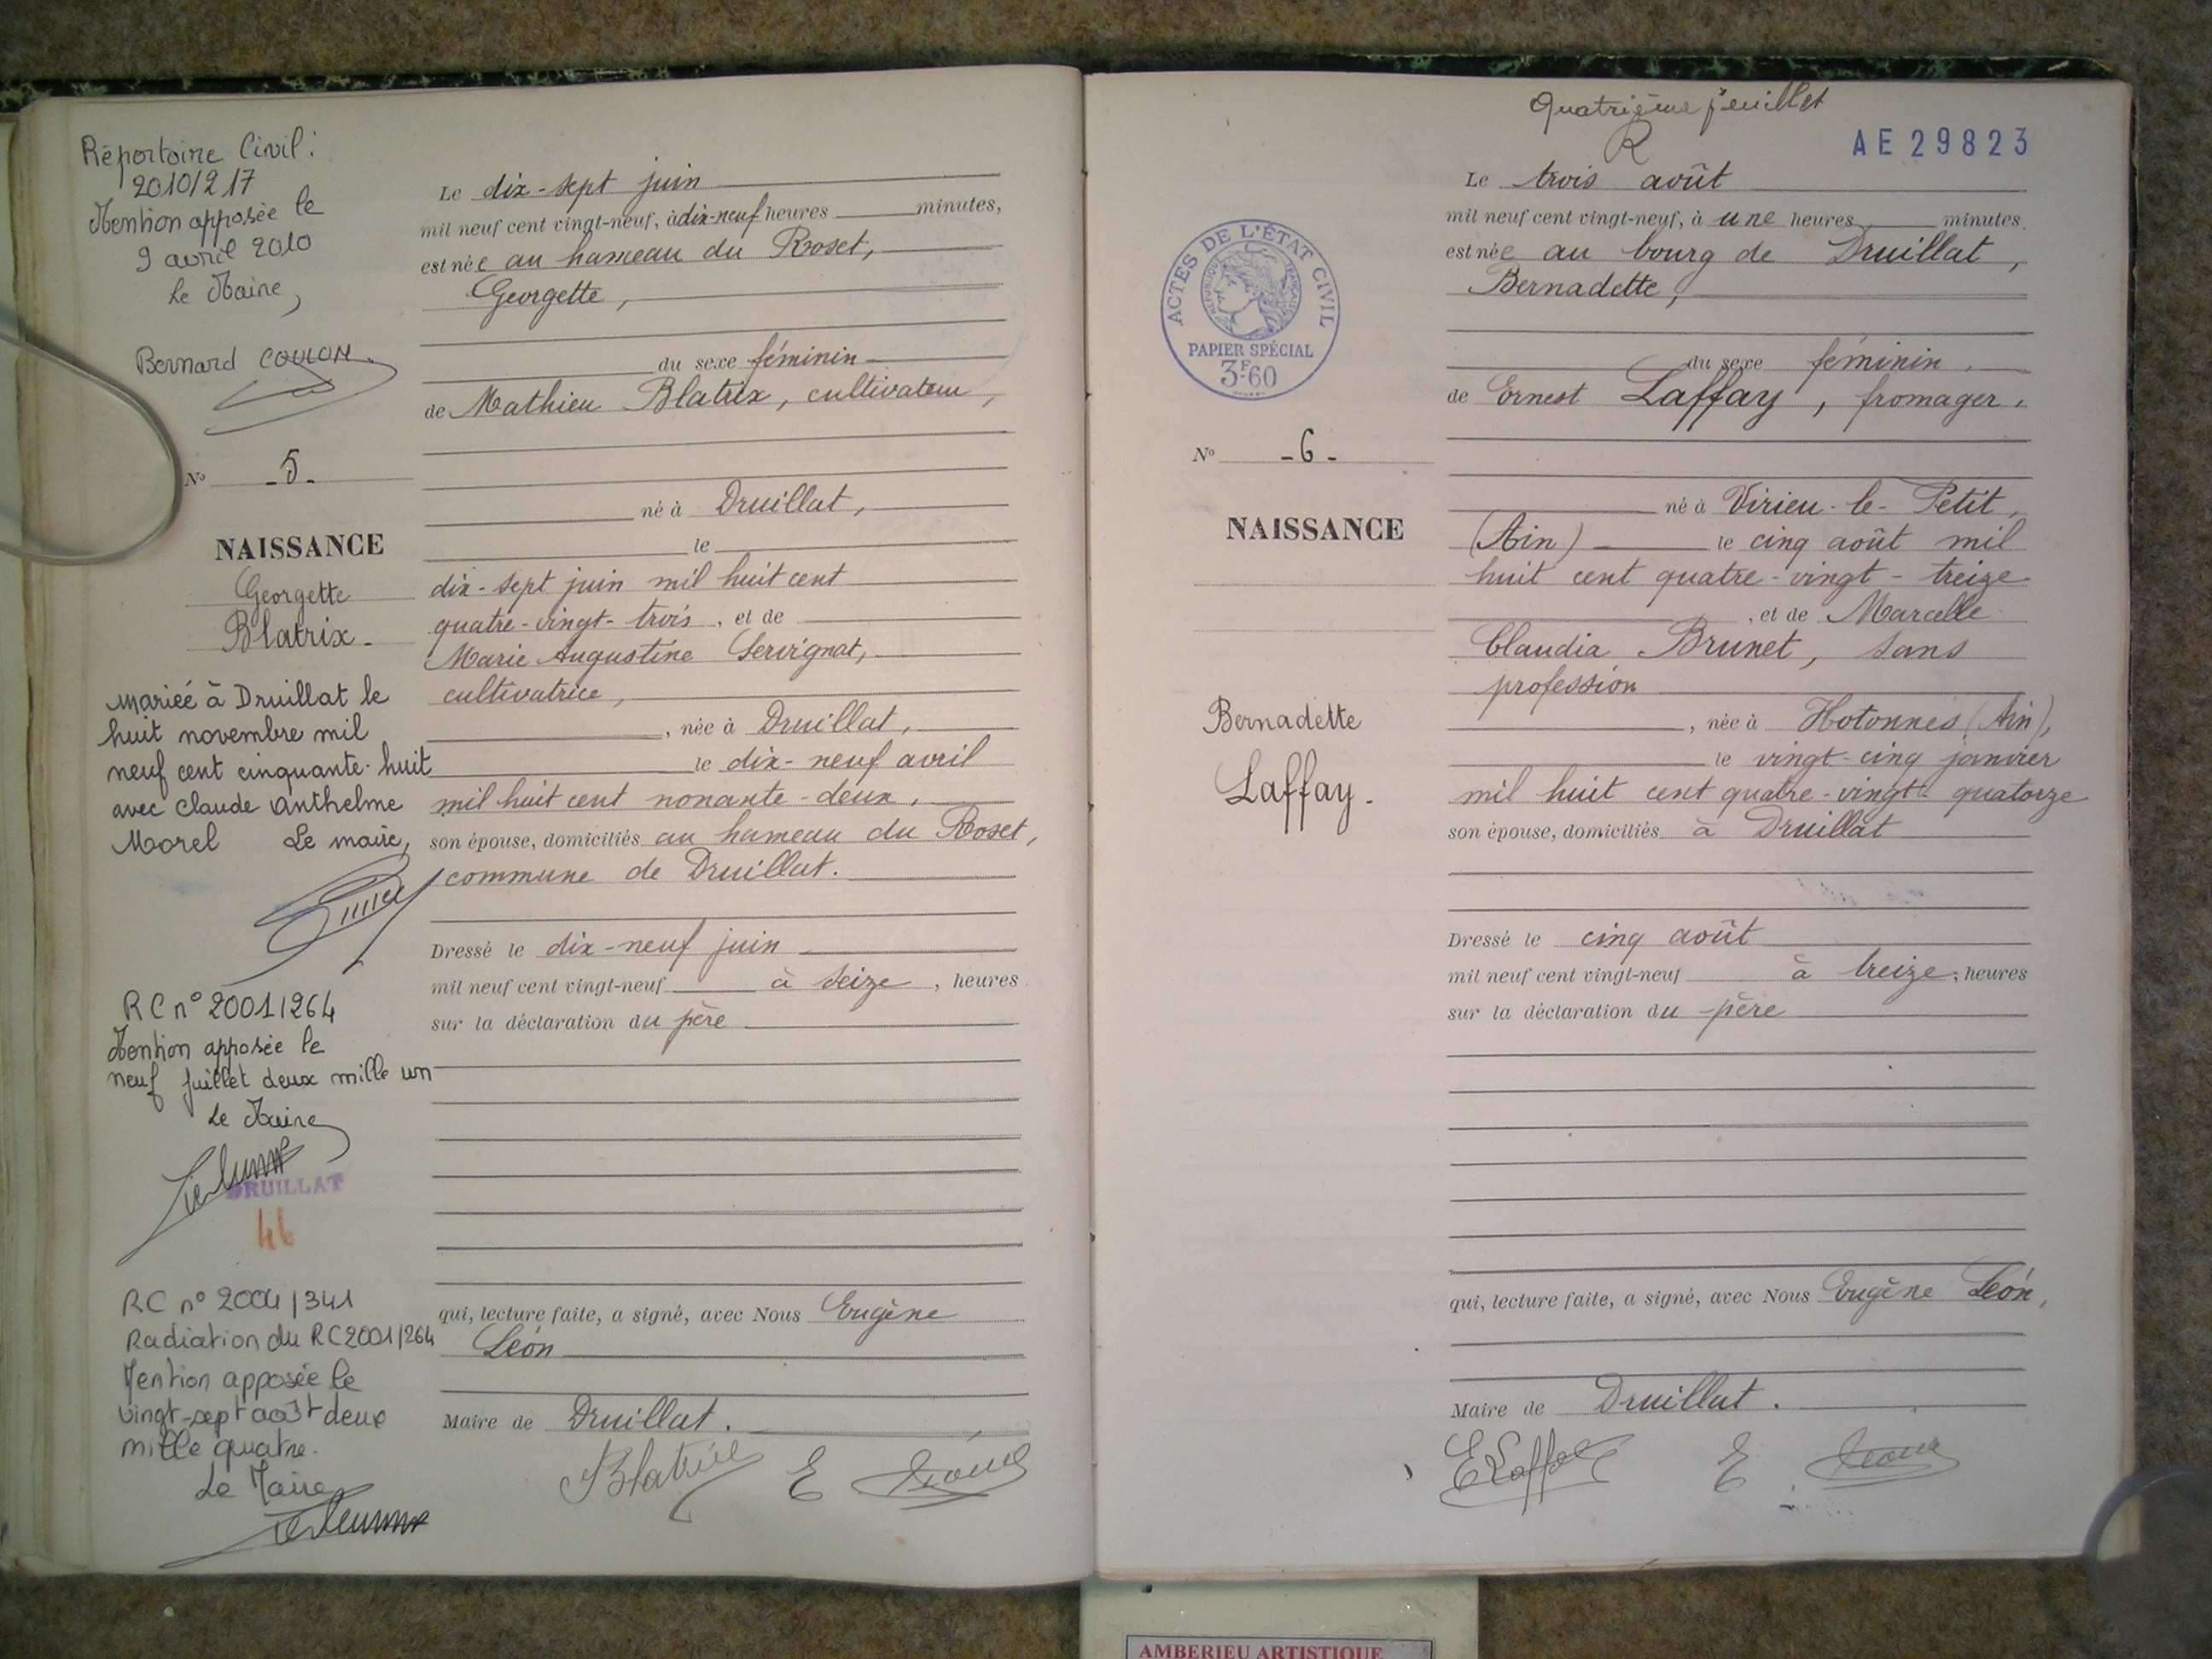 Répertoire Civil:
2010/217
Mention apposée le
9 avril 2010
Le Maire,
Bernard COULON.
No -5-
NAISSANCE
Georgette
Blatrix-
mariée à Druillat le
huit novembre mil
neuf cent cinquante-huit
avec Claude Anthelme
Morel Le maire,
RC n° 2001/264
Mention apposée le
neuf juillet deux mille un
Le Maire
DRUILLAT
46
RC n° 2004/341
Radiation du RC2001/264
Mention apposée le
vingt-sept août deux
mille quatre.
Le Maire
Le dix-sept juin
mil neuf cent vingt-neuf, à dix-neuf heures minutes,
est née au hameau du Roset,
Georgette,
du sexe féminin
de Mathieu Blatrix, cultivateur,
né à Druillat,
le
dix-sept juin mil huit cent
quatre-vingt-trois, et de
Marie Augustine Servignat,
cultivatrice,
, née à Druillat,
le dix-neuf avril
mil huit cent nonante-deux,
son épouse, domiciliés au hameau du Roset,
commune de Druillat.
Dressé le dix-neuf juin
mil neuf cent vingt-neuf à seize, heures
sur la déclaration du père
qui, lecture faite, a signé, avec Nous Eugène
Léon
Maire de Druillat.
Blatrix E Léon
Quatrième feuillet
R
AE 29823
ACTES DE L'ÉTAT CIVIL
RÉPUBLIQUE FRANÇAISE
PAPIER SPÉCIAL
3F60
No -6-
NAISSANCE
Bernadette
Laffay-
Le trois août
mil neuf cent vingt-neuf, à une heures minutes.
est née au bourg de Druillat,
Bernadette,
du sexe féminin,
de Ernest Laffay, fromager,
né à Virieu-le-Petit,
(Ain) le cinq août mil
huit cent quatre-vingt-treize
, et de Marcelle
Claudia Brunet, sans
profession
, née à Hotonnes (Ain),
le vingt-cinq janvier
mil huit cent quatre-vingt-quatorze
son épouse, domiciliés à Druillat
Dressé le cinq août
mil neuf cent vingt-neuf à treize, heures
sur la déclaration du père
qui, lecture faite, a signé, avec Nous Eugène Léon,
Maire de Druillat.
E Laffay E Léon
AMBERIEU ARTISTIQUE